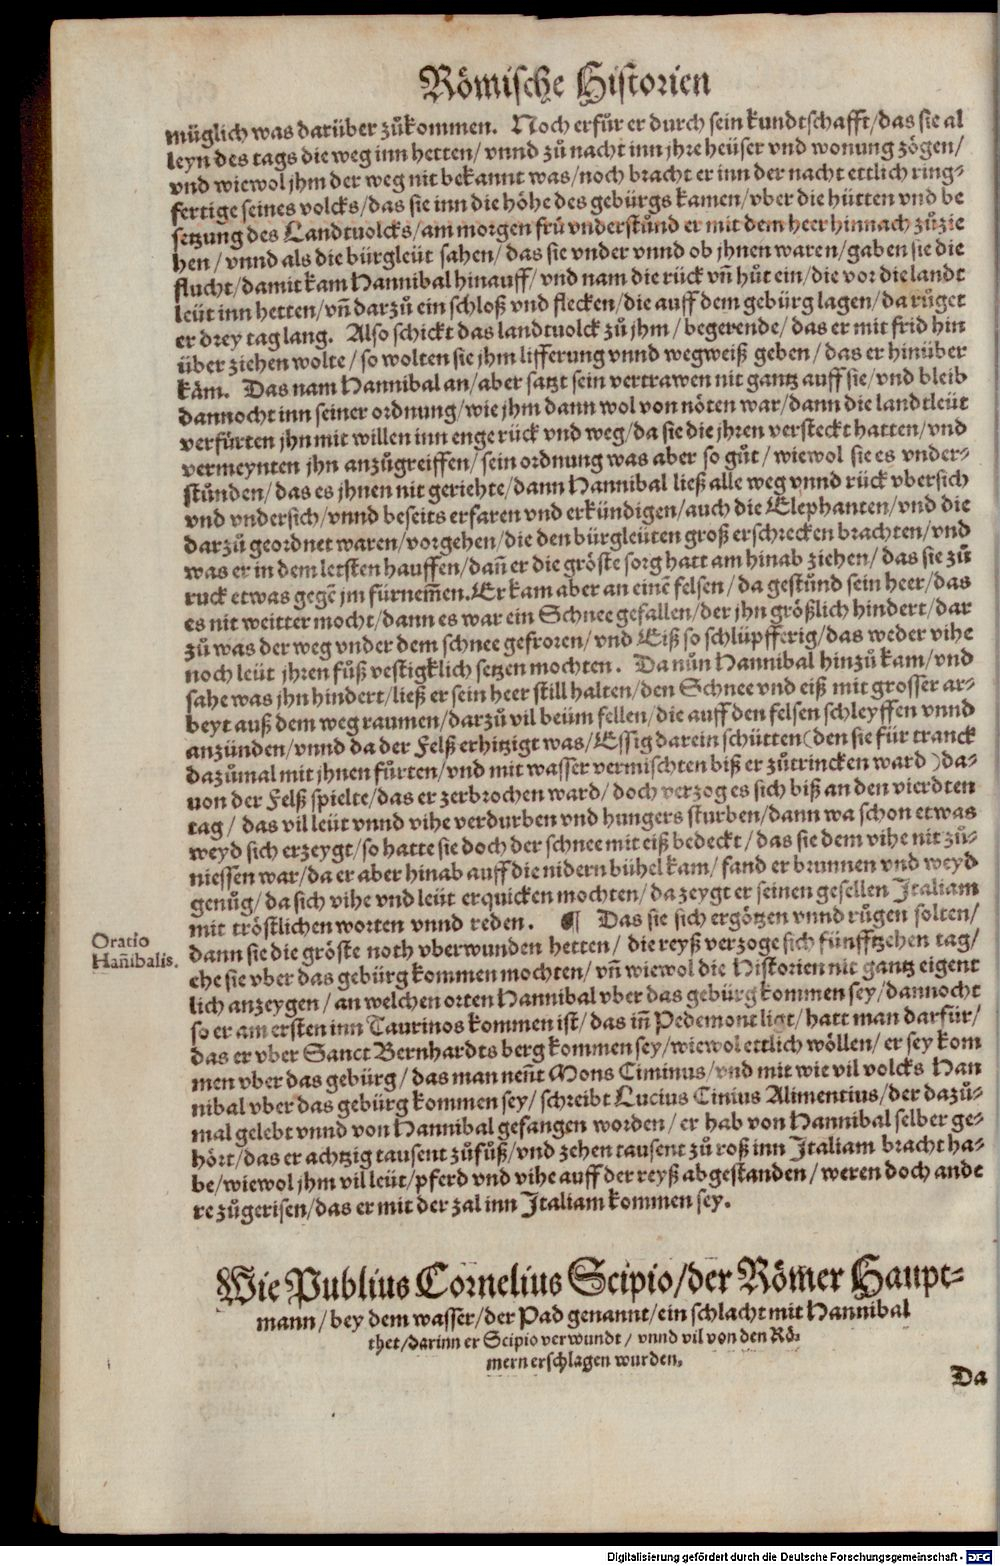 Römische Historien
müglich was darüber zůkommen. Noch erfůr er durch sein kundtschafft/das sie al
leyn des tags die weg inn hetten/vnnd zů nacht inn jhre heüser vnd wonung zögen/
vnd wiewol jhm der weg nit bekannt was/noch bracht er inn der nacht ettlich ring-
fertige seines volcks/das sie inn die höhe des gebürgs kamen/vber die hütten vnd be
setzung des Landtuolcks/am morgen frů vnderstůnd er mit dem heer hinnach zůzie
hen/vnnd als die bürgleüt sahen/das sie vnder vnnd ob jhnen waren/gaben sie die
flucht/damit kam Hannibal hinauff/vnd nam die rück vñ hůt ein/die vor die landt
leüt inn hetten/vñ darzů ein schloß vnd flecken/die auff dem gebürg lagen/da růget
er drey tag lang. Also schickt das landtuolck zů jhm/begerende/das er mit frid hin
über ziehen wolte/so wolten sie jhm lifferung vnnd wegweiß geben/das er hinüber
käm. Das nam Hannibal an/aber satzt sein vertrawen nit gantz auff sie/vnd bleib
dannocht inn seiner ordnung/wie jhm dann wol von nöten war/dann die landtleüt
verfürten jhn mit willen inn enge rück vnd weg/da sie die jhren versteckt hatten/vnd
vermeynten jhn anzůgreiffen/sein ordnung was aber so gůt/wiewol sie es vnder-
stůnden/das es jhnen nit geriehte/dann Hannibal ließ alle weg vnnd rück vbersich
vnd vndersich/vnnd beseits erfaren vnd erkündigen/auch die Elephanten/vnd die
darzů geordnet waren/vorgehen/die den bürgleüten groß erschrecken brachten/vnd
was er in dem letsten hauffen/dañ er die gröste sorg hatt am hinab ziehen/das sie zů
ruck etwas gegē jm fürnem̃en. Er kam aber an einē felsen/da gestůnd sein heer/das
es nit weitter mocht/dann es war ein Schnee gefallen/der jhn größlich hindert/dar
zů was der weg vnder dem schnee gefroren/vnd Eiß so schlüpfferig/das weder vihe
noch leüt jhren fůß vestigklich setzen mochten. Da nůn Hannibal hinzů kam/vnd
sahe was jhn hindert/ließ er sein heer still halten/den Schnee vnd eiß mit grosser ar-
beyt auß dem weg raumen/darzů vil beüm fellen/die auff den felsen schleyffen vnnd
anzünden/vnnd da der Felß erhitzigt was/Essig darein schütten (den sie für tranck
dazůmal mit jhnen fůrten/vnd mit wasser vermischten biß er zůtrincken ward) da-
uon der Felß spielte/das er zerbrochen ward/doch verzog es sich biß an den vierdten
tag/das vil leüt vnnd vihe verdurben vnd hungers sturben/dann wa schon etwas
weyd sich erzeygt/so hatte sie doch der schnee mit eiß bedeckt/das sie dem vihe nit zů-
niessen war/da er aber hinab auff die nidern bühel kam/fand er brunnen vnd weyd
genůg/da sich vihe vnd leüt erquicken mochten/da zeygt er seinen gesellen Italiam
mit tröstlichen worten vnnd reden. ¶ Das sie sich ergötzen vnnd růgen solten/
Oratio
Hañibalis.
dann sie die gröste noth vberwunden hetten/die reyß verzoge sich fünfftzehen tag/
ehe sie vber das gebürg kommen mochten/vñ wiewol die Historien nit gantz eigent
lich anzeygen/an welchen orten Hannibal vber das gebürg kommen sey/dannocht
so er am ersten inn Taurinos kommen ist/das im̃ Pedemont ligt/hatt man darfür/
das er vber Sanct Bernhardts berg kommen sey/wiewol ettlich wöllen/er sey kom
men vber das gebürg/das man neñt Mons Ciminus/vnd mit wie vil volcks Han
nibal vber das gebürg kommen sey/schreibt Lucius Cinius Alimentius/der dazů-
mal gelebt vnnd von Hannibal gefangen worden/er hab von Hannibal selber ge-
hört/das er achtzig tausent zůfůß/vnd zehen tausent zů roß inn Italiam bracht ha-
be/wiewol jhm vil leüt/pferd vnd vihe auff der reyß abgestanden/weren doch ande
re zůgerisen/das er mit der zal inn Italiam kommen sey.
Wie Publius Cornelius Scipio/der Römer Haupt-
mann/bey dem wasser/der Pad genannt/ein schlacht mit Hannibal
thet/darinn er Scipio verwundt/vnnd vil von den Rö-
mern erschlagen wurden.
Da
Digitalisierung gefördert durch die Deutsche Forschungsgemeinschaft - DFG